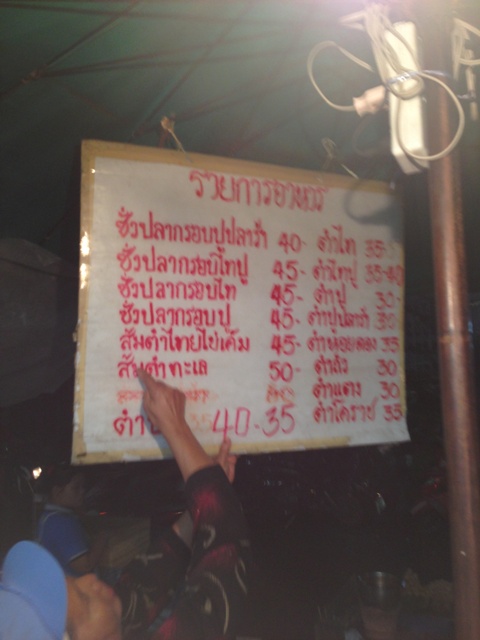 รายการอาหาร
ซั่วปลากรอบปูปลาร้า 40- ตำไท 35
ซั่วปลากรอบไทปู 45- ตำไทปู 35-40
ซั่วปลากรอบไท 45- ตำปู 30-
ซั่วปลากรอบปู 45- ตำปูปลาร้า 30
ส้มตำไทยไข่เค็ม 45- ตำหอยดอง 35
ส้มตำทะเล 50- ตำถั่ว 30
ตำแตง 30
ตำ 40-35 ตำโคราช 35